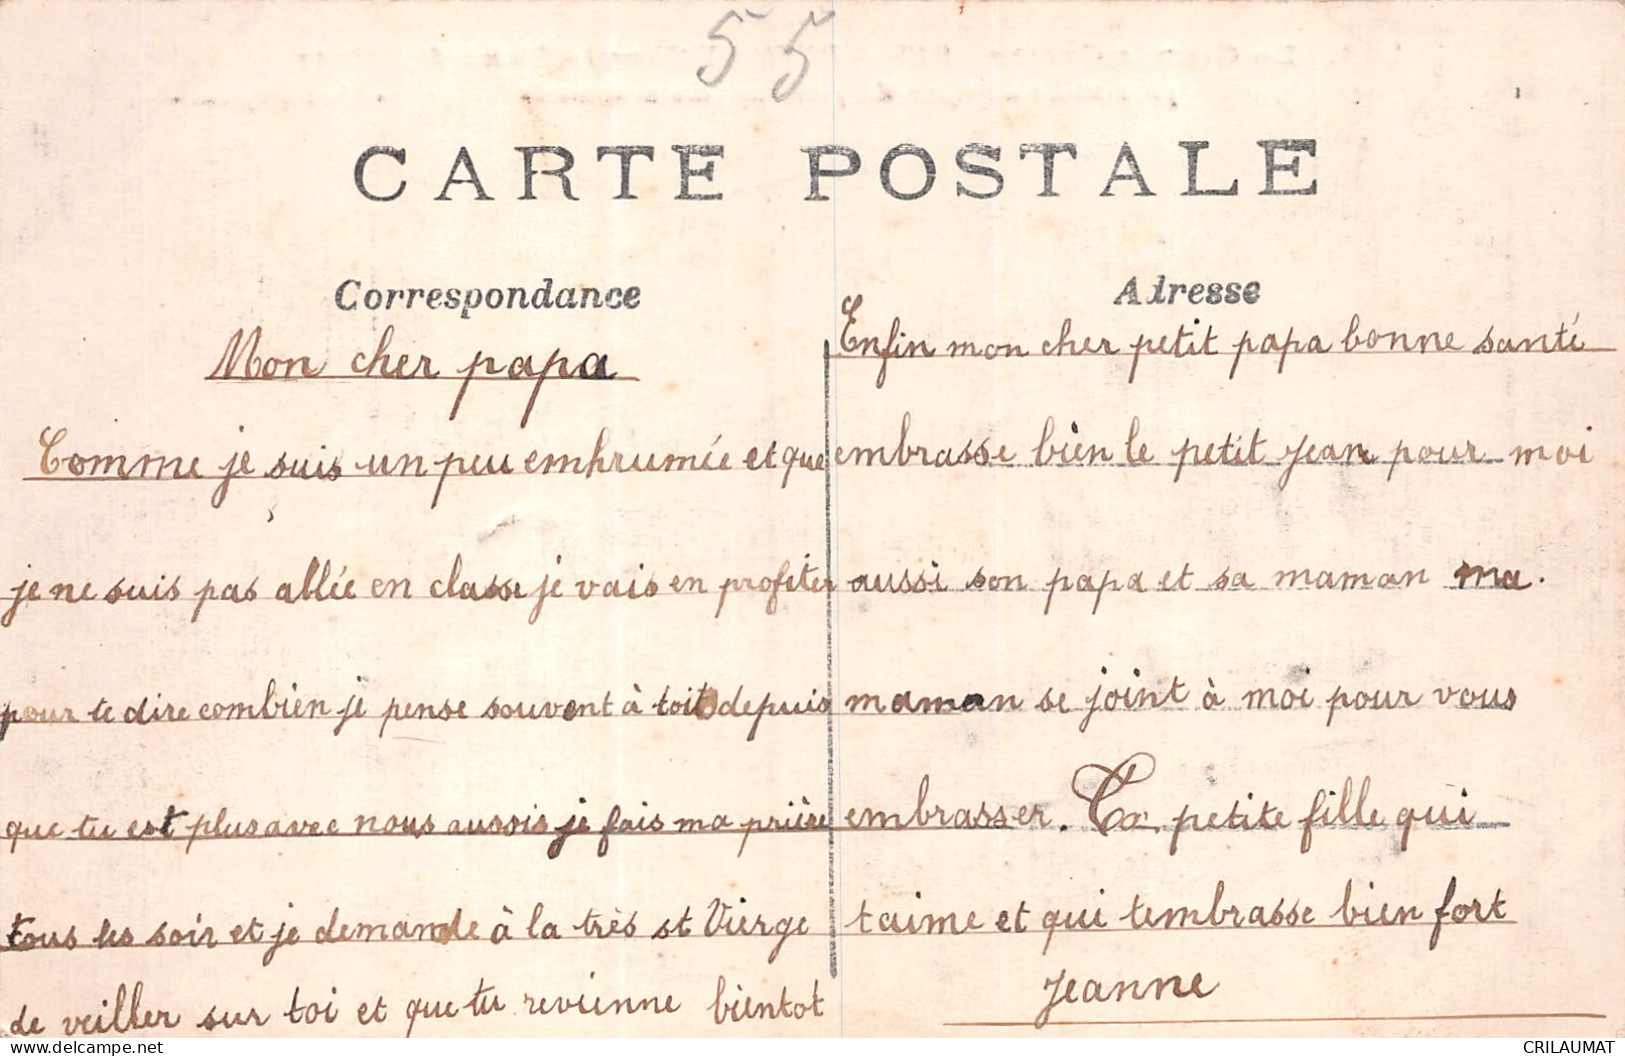 55
CARTE POSTALE
Correspondance
Mon cher papa
Comme je suis un peu emhrumée et que
je ne suis pas allée en classe je vais en profiter
pour te dire combien je pense souvent à toit depuis
que tu est plus avec nous aussis je fais ma prière
tous les soir et je demande à la très st Vierge
de veiller sur toi et que tu revienne bientot
Adresse
Enfin mon cher petit papa bonne santé
embrasse bien le petit Jean pour moi
aussi son papa et sa maman ma.
maman se joint à moi pour vous
embrasser. Ta petite fille qui
taime et qui tembrasse bien fort
Jeanne
CRILAUMAT